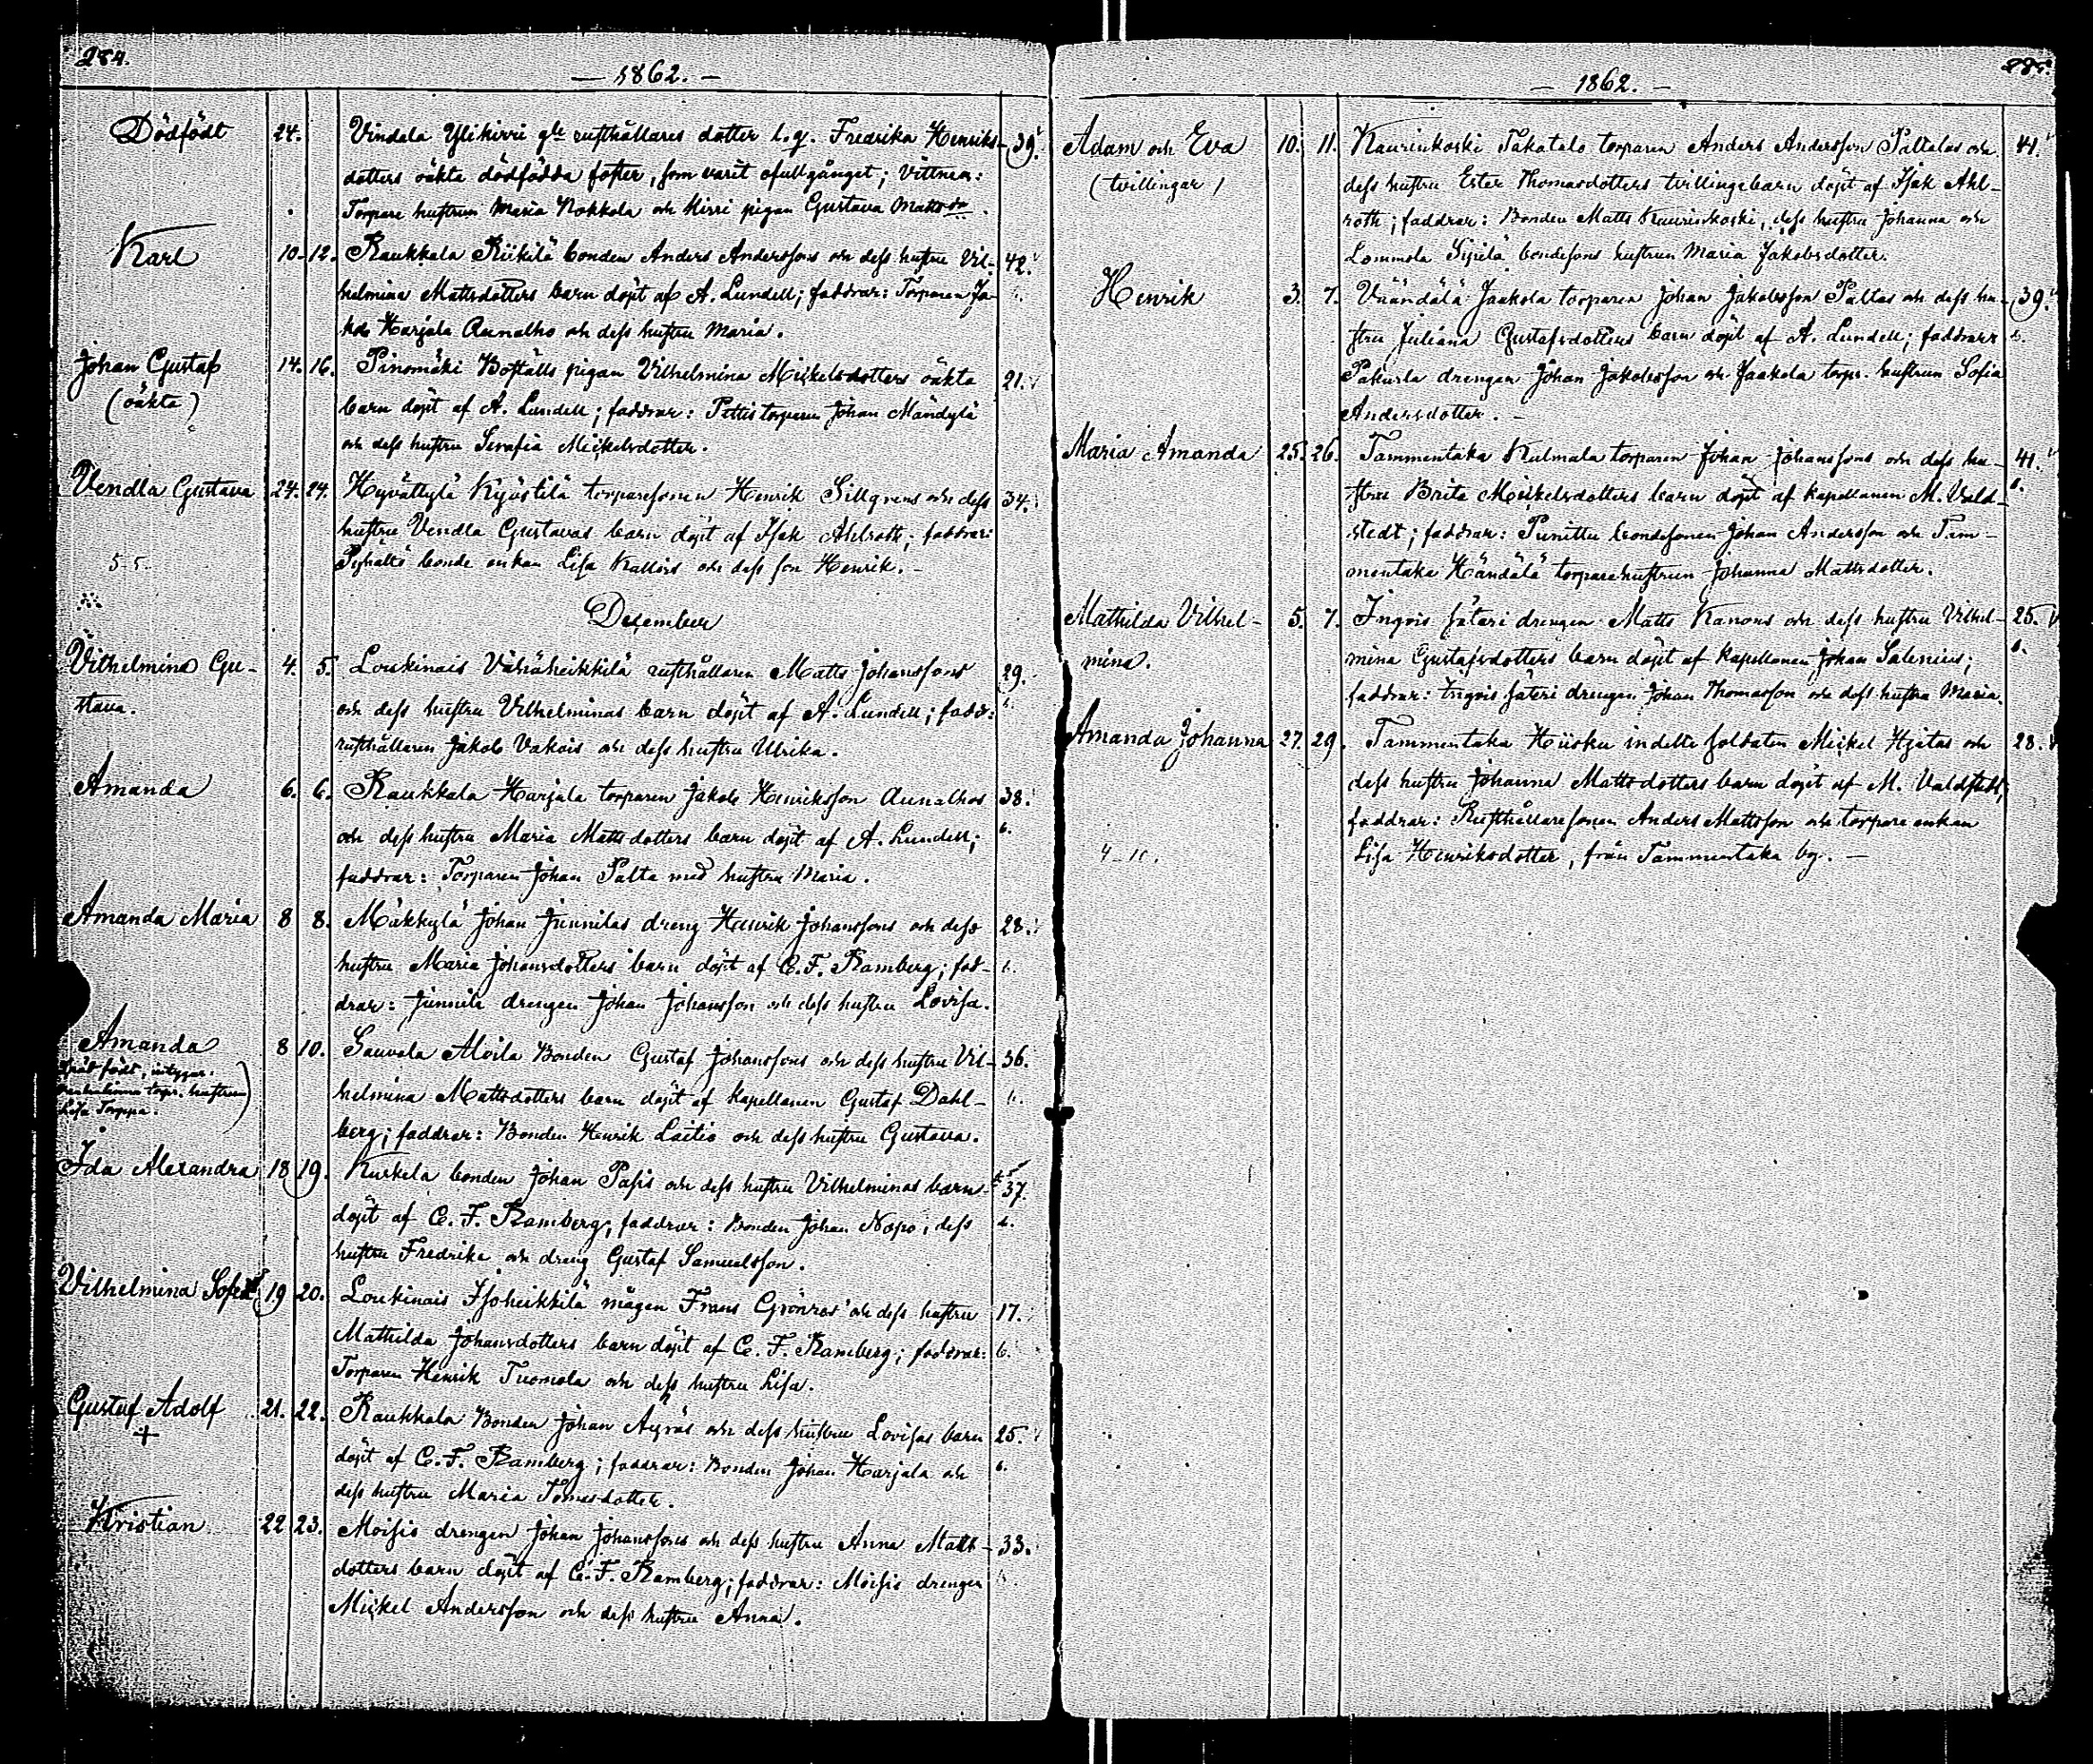 284.
— 1862. —
Dödfödt 24. Vindala Ylikirri gle rusthållares dotter l. q. Fredrika Henriks- 39.
dotters oäkta dödfödda foster, som varit ofullgånget; Vittnen:
Torpare hustrun Maria Nokkola och Kirri pigan Gustava Mattsdr.
Karl 10. 12. Raukkala Riikilä bonden Anders Anderssons och dess hustru Vil- 42.
helmina Mattsdotters barn döpt af A. Lundell; faddrar: Torparen Ja-
kob Harjala Aunalho och dess hustru Maria.
Johan Gustaf 14. 16. Pinomäki Boställs pigan Vilhelmina Mickelsdotters oäkta 21.
(oäkta) barn döpt af A. Lundell; faddrar: Pettis torparen Johan Mändylä
och dess hustru Serafia Mickelsdotter.
Vendla Gustava 24. 24. Hyvättylä Kyöstilä torparesonen Henrik Sillgrens och dess 34.
hustru Vendla Gustavas barn döpt af Isak Ahlroth; faddrar:
5-5- Pyhältö bonde enkan Lisa Kallois och dess son Henrik. -
December
Vilhelmina Gu- 4. 5. Loukinais Vähäheikkilä rusthållaren Matts Johanssons 29.
stava. och dess hustru Vilhelminas barn döpt af A. Lundell; fadd:
rusthållaren Jakob Vakois och dess hustru Ulrika.
Amanda 6. 6. Raukkala Harjala torparen Jakob Henriksson Aunalhos 38.
och dess hustru Maria Mattsdotters barn döpt af A. Lundell; b.
faddrar: Torparen Johan Palta med hustru Maria.
Amanda Maria 8 8. Mäkkylä Johan Junnilas dreng Henrik Johanssons och dess 28.
hustru Maria Johansdotters barn döpt af C. F. Ramberg; fad- b.
drar: Junnila drengen Johan Johansson och dess hustru Lovisa.
Amanda 8 10. Sauvala Moila Bonden Gustaf Johanssons och dess hustru Vil- 36.
helmina Mattsdotters barn döpt af Kapellanen Gustaf Dahl-
berg; faddrar: Bonden Henrik Laitio och dess hustru Gustava.
Ida Alexandra 18 19. Kurkela bonden Johan Pasis och dess hustru Vilhelminas barn 37.
döpt af C. F. Ramberg; faddrar: Bonden Johan Nopo, dess b.
hustru Fredrika och dreng Gustaf Samuelsson.
Vilhelmina Sofia 19 20. Loukinais Isoheikkilä mågen Frans Grönros och dess hustru 17.
Mathilda Johansdotters barn döpt af C. F. Ramberg; faddrar: b.
Torparen Henrik Tuomola och dess hustru Lisa.
Gustaf Adolf 21. 22. Raukkala Bonden Johan Äyräs och dess hustru Lovisas barn 25.
+ döpt af C. F. Ramberg; faddrar: Bonden Johan Harjala och b.
dess hustru Maria Tomasdotter.
Kristian 22 23. Moisio drengen Johan Johanssons och dess hustru Anna Matts- 33.
dotters barn döpt af C. F. Ramberg; faddrar: Moisio drengen
Mickel Andersson och dess hustru Anna.
285.
— 1862. —
Adam och Eva 10. 11. Kaurinkoski Takatalo torparen Anders Andersson Paltalas och 41.
(tvillingar) dess hustru Ester Thomasdotters tvillingebarn döpt af Isak Ahl-
roth; faddrar: Bonden Matts Kaurinkoski, dess hustru Johanna och
Lommola Sipilä bondesons hustrun Maria Jakobsdotter.
Henrik 3. 7. Väändälä Jaakola torparen Johan Jakobsson Paltas och dess hu- 39.
stru Juliana Gustafsdotters barn döpt af A. Lundell; faddrar b.
Pakurla drengen Johan Jakobsson och Jaakola torp. hustrun Sofia
Andersdotter. -
Maria Amanda 25. 26. Tammentaka Kulmala torparen Johan Johanssons och dess hu- 41.
stru Brita Mickelsdotters barn döpt af kapellanen M. Vald- b.
stedt; faddrar: Punittu bondesonen Johan Andersson och Tam-
mentaka Händälä torparehustrun Johanna Mattsdotter.
Mathilda Vilhel- 5. 7. Ingvis säteri drengen Matts Kanons och dess hustru Vilhel- 25.
mina. mina Gustafsdotters barn döpt af Kapellanen Johan Salenius; b.
faddrar: Ingvis säteri drengen Johan Thomasson och dess hustru Maria.
Amanda Johanna 27. 29. Tammentaka Hiisku indelte soldaten Mickel Hjetas och 28.
dess hustru Johanna Mattsdotters barn döpt af M. Valdstedt;
faddrar: Rusthållaresonen Anders Mattsson och torpare enkan
4-10. Lisa Henriksdotter, från Tammentaka by. —